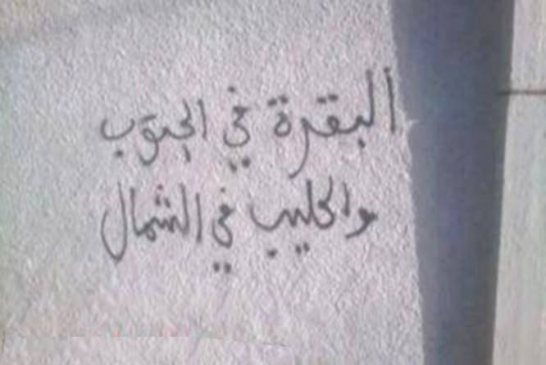 البقرة في الجنوب
والحليب في الشمال